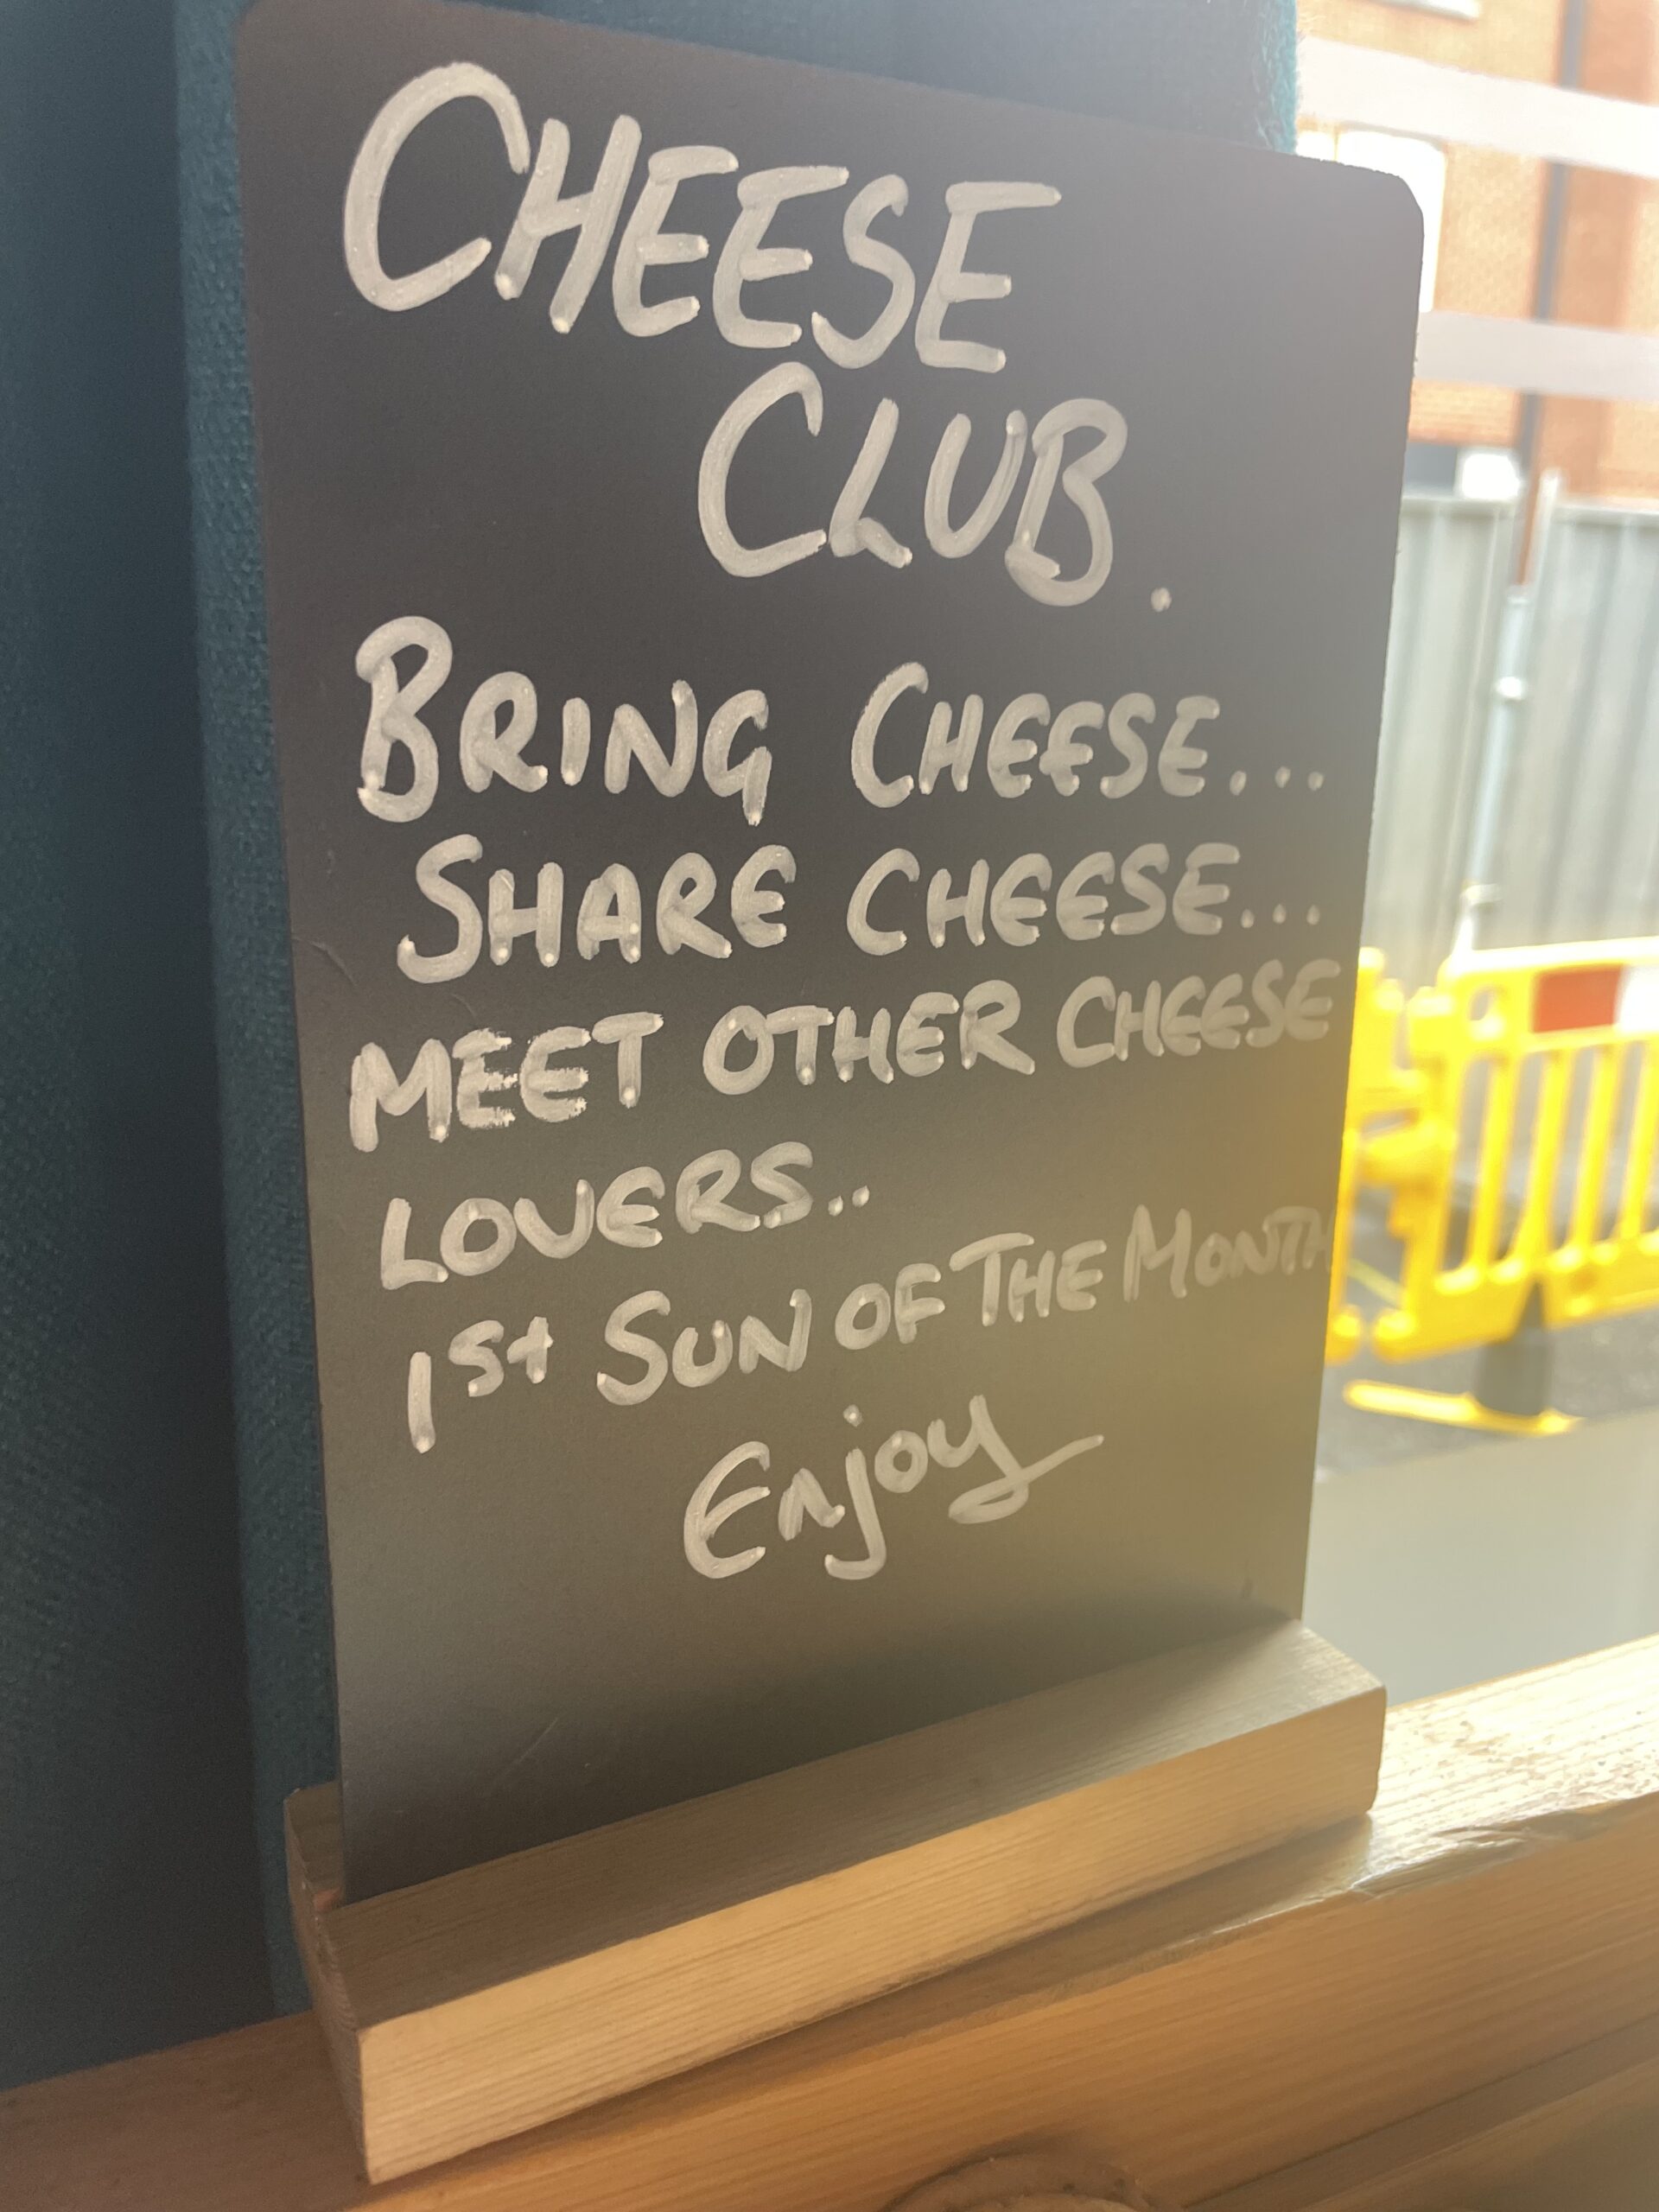 CHEESE
CLUB.
BRING CHEESE...
SHARE CHEESE...
MEET OTHER CHEESE
LOVERS..
1st SUN OF THE MONTH
Enjoy